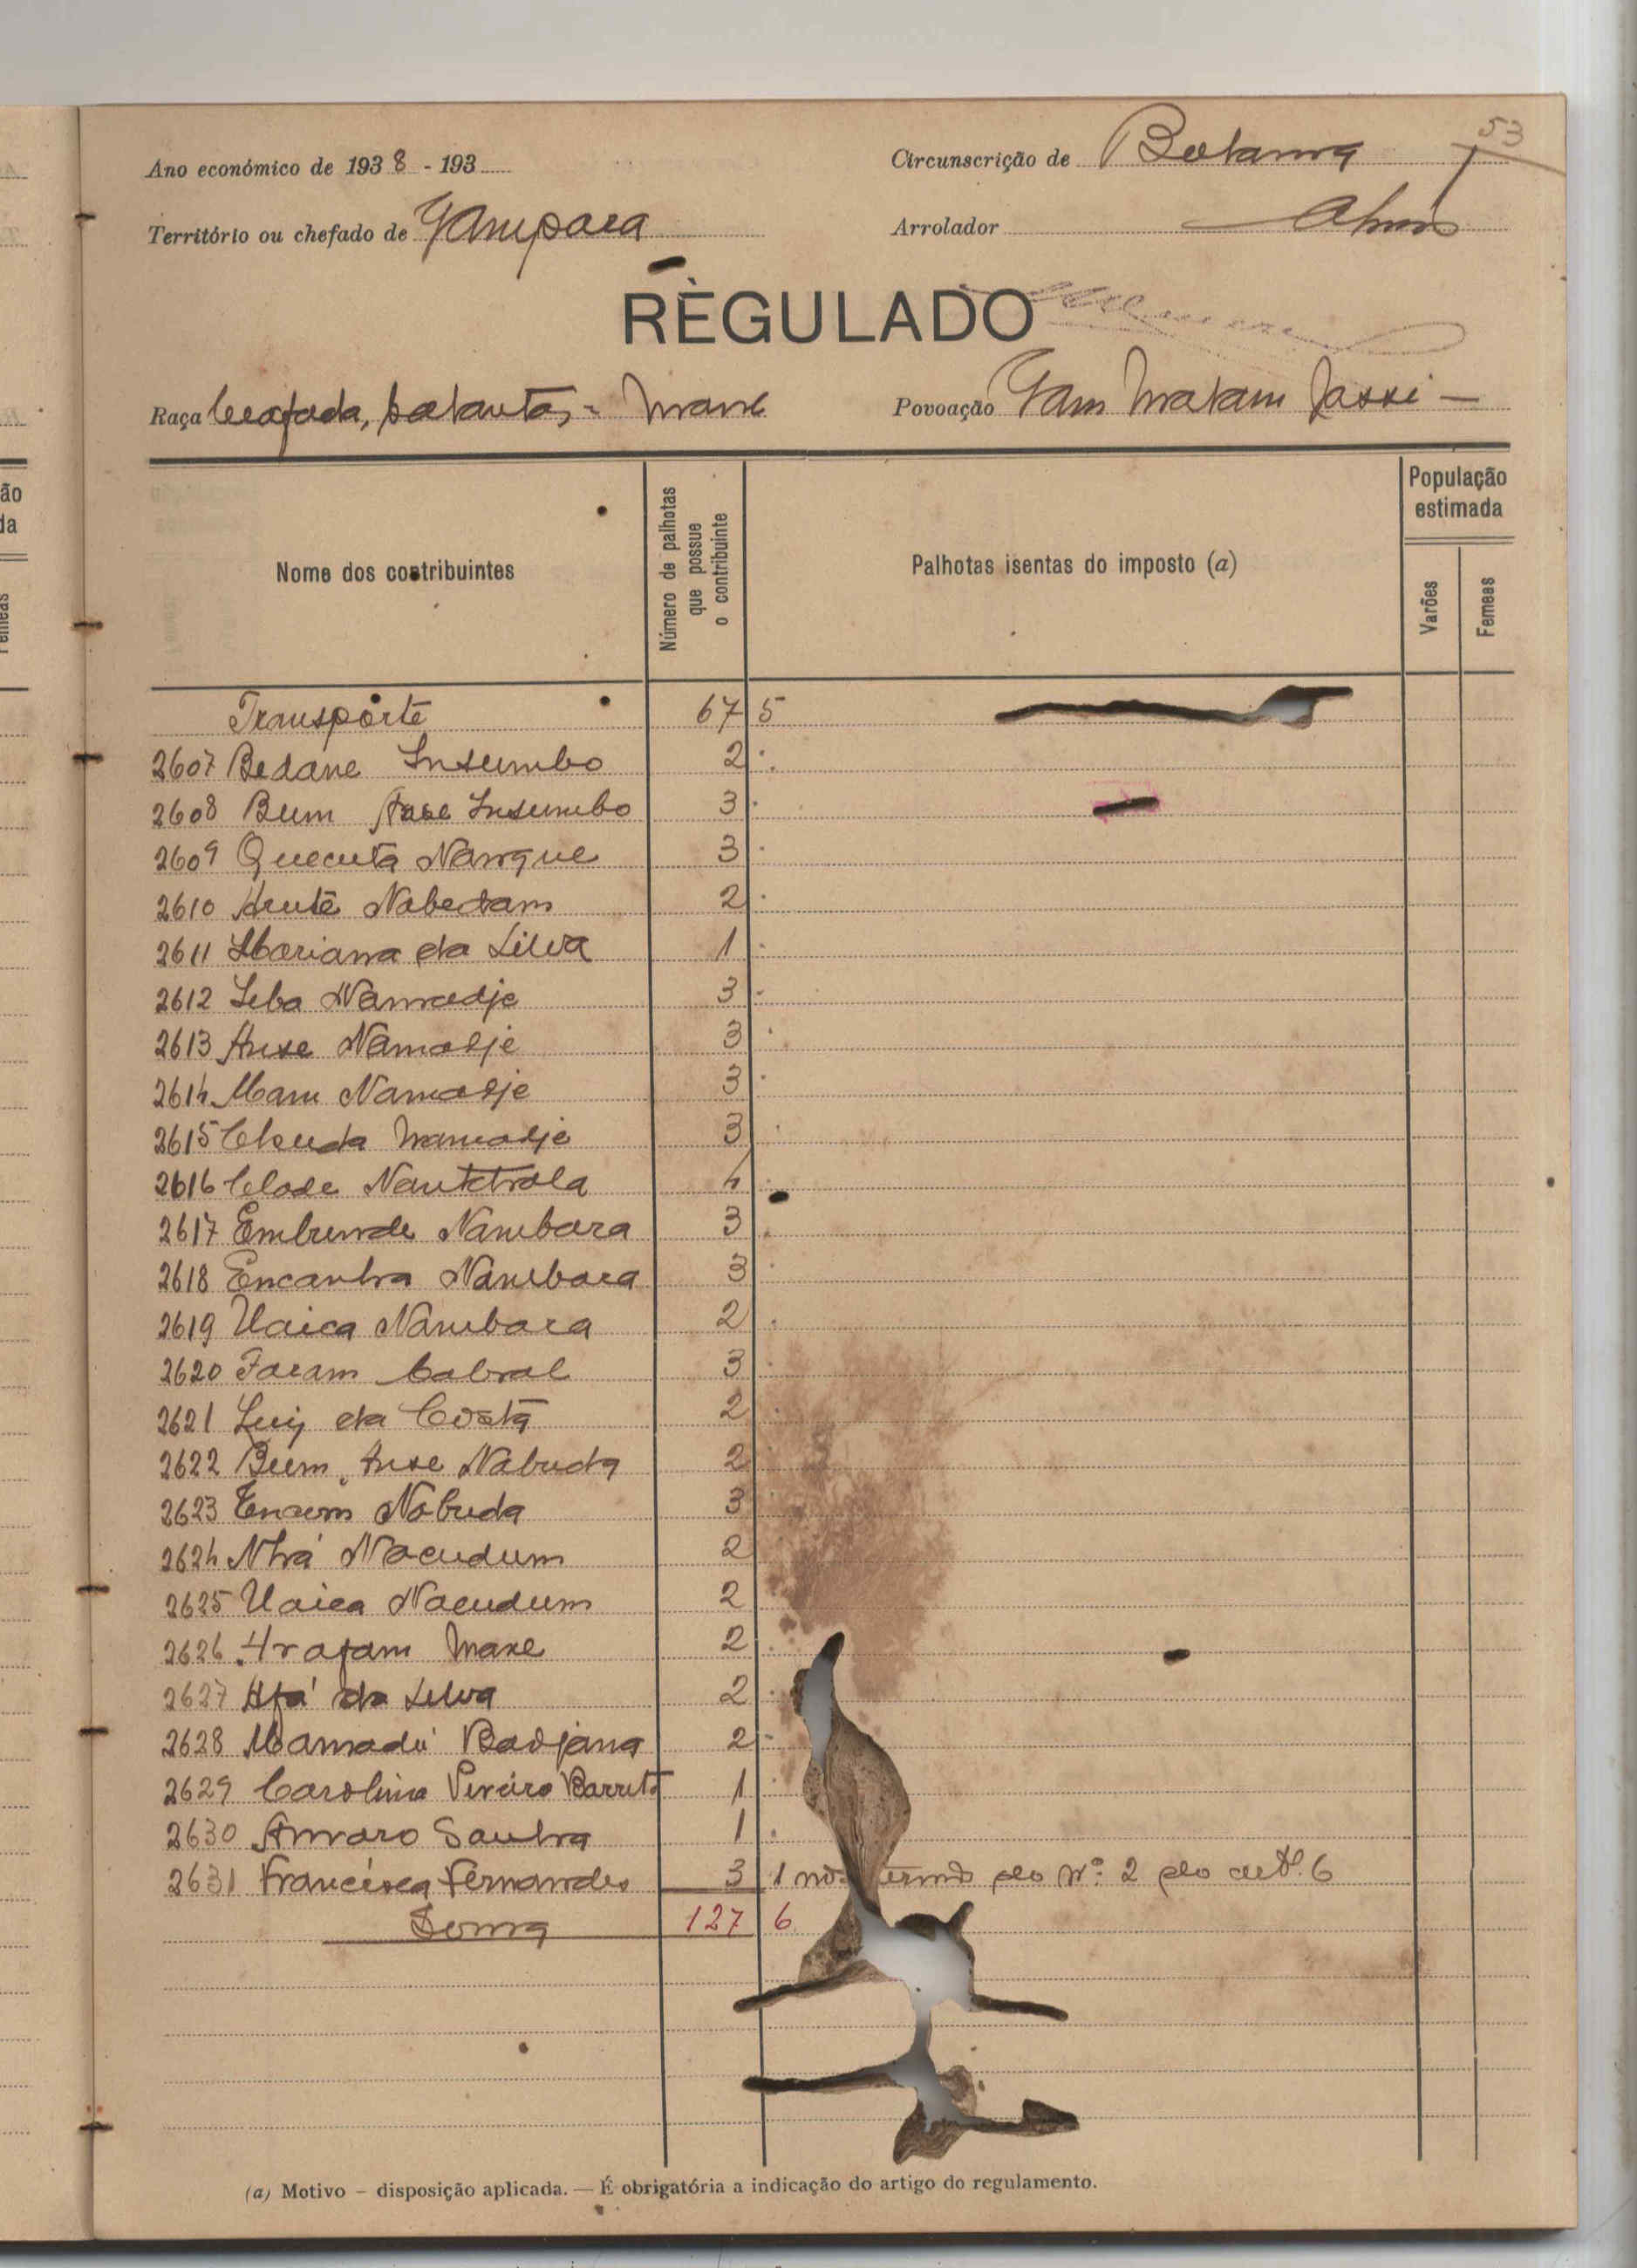 53
Ano económico de 1938 - 193
Circunscrição de Bolama
Território ou chefado de Gampara
Arrolador
REGULADO
Raça Beafada, balantas, - Mané
Povoação Gam Matam Jassi -
Nome dos contribuintes
Número de palhotas que possue o contribuinte
Palhotas isentas do imposto (a)
População estimada
Varões
Femeas
Transporte 67 5
2607 Bedane Insumbo 2
2608 Bum Insumbo 3
2609 Quecuta Nanque 3
2610 Nabedam 2
2611 Mariana da Silva 1
2612 Seba Namadje 3
2613 Anse Namadje 3
2614 Mam Namadje 3
2615 Namadje 3
2616 Clode 4
2617 Embunde Nambara 3
2618 Encanha Nambara 3
2619 Uaica Nambara 2
2620 Faram Cabral 3
2621 Luiz da Costa 2
2622 Bum Anse Nabuda 2
2623 Nabuda 3
2624 Nhá Nacudum 2
2625 Uaica Nacudum 2
2626 Mané 2
2627 da Silva 2
2628 Mamadú Badjana 2
2629 Carolina Pereira Barreto 1
2630 Amaro Sanha 1
2631 Francisca Fernandes 3 1 do Nº 2 do artº. 6
Soma 127 6
(a) Motivo – disposição aplicada. — É obrigatória a indicação do artigo do regulamento.